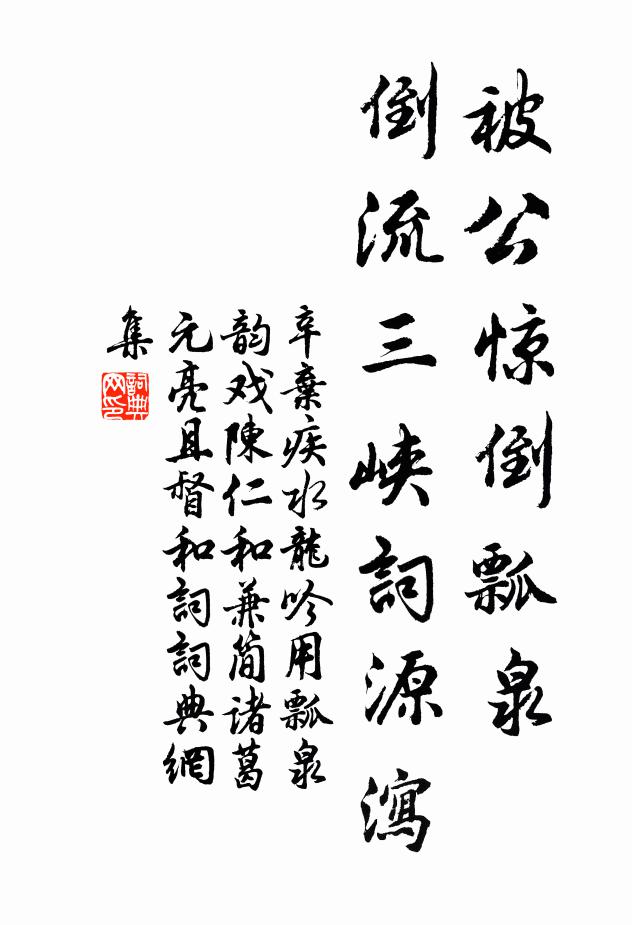 被公惊倒瓢泉
倒流三峡詞源瀉
辛棄疾水龍吟用瓢泉
韵戏陳仁和兼简诸葛
元亮且督和詞詞典網
集
詞典
网印